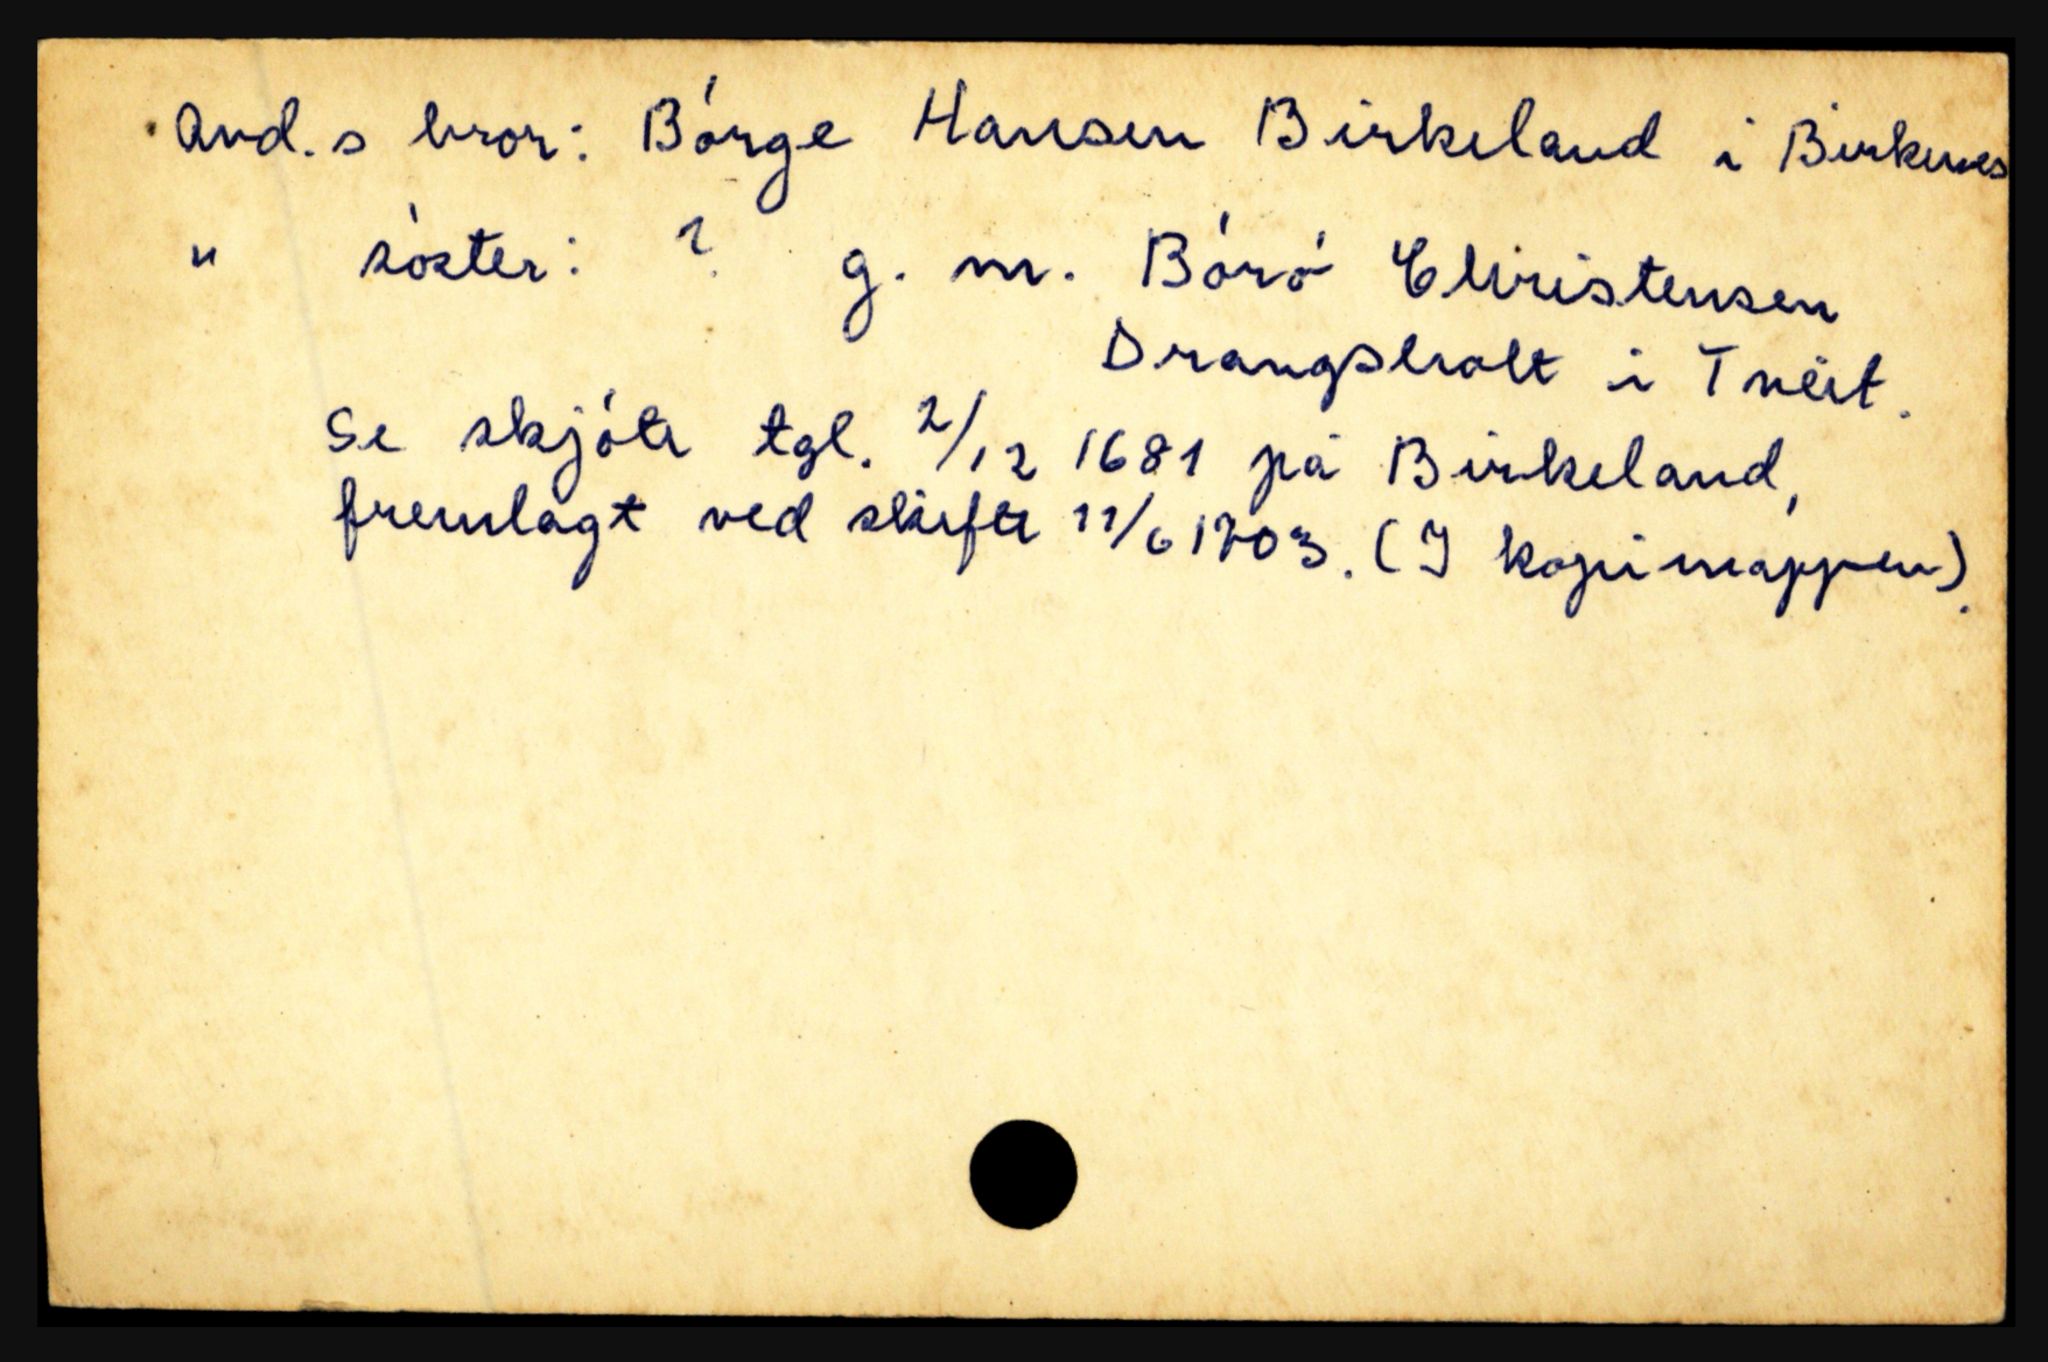 Avd.s bror: Bórge Hansen Birkeland i Birkenes
" sóster: ? g. m. Bóró Christensen
Drangsholt i Tveit.
Se skjóte tgl. 2/12 1681 på Birkeland,
fremlagt ved skifte 11/6 1703. (I kopimappen).